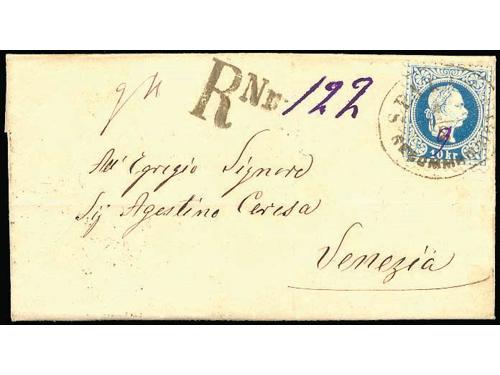 R Nr 122
10 kr
All' Egregio Signore
Sig Agostino Ceresa
Venezia